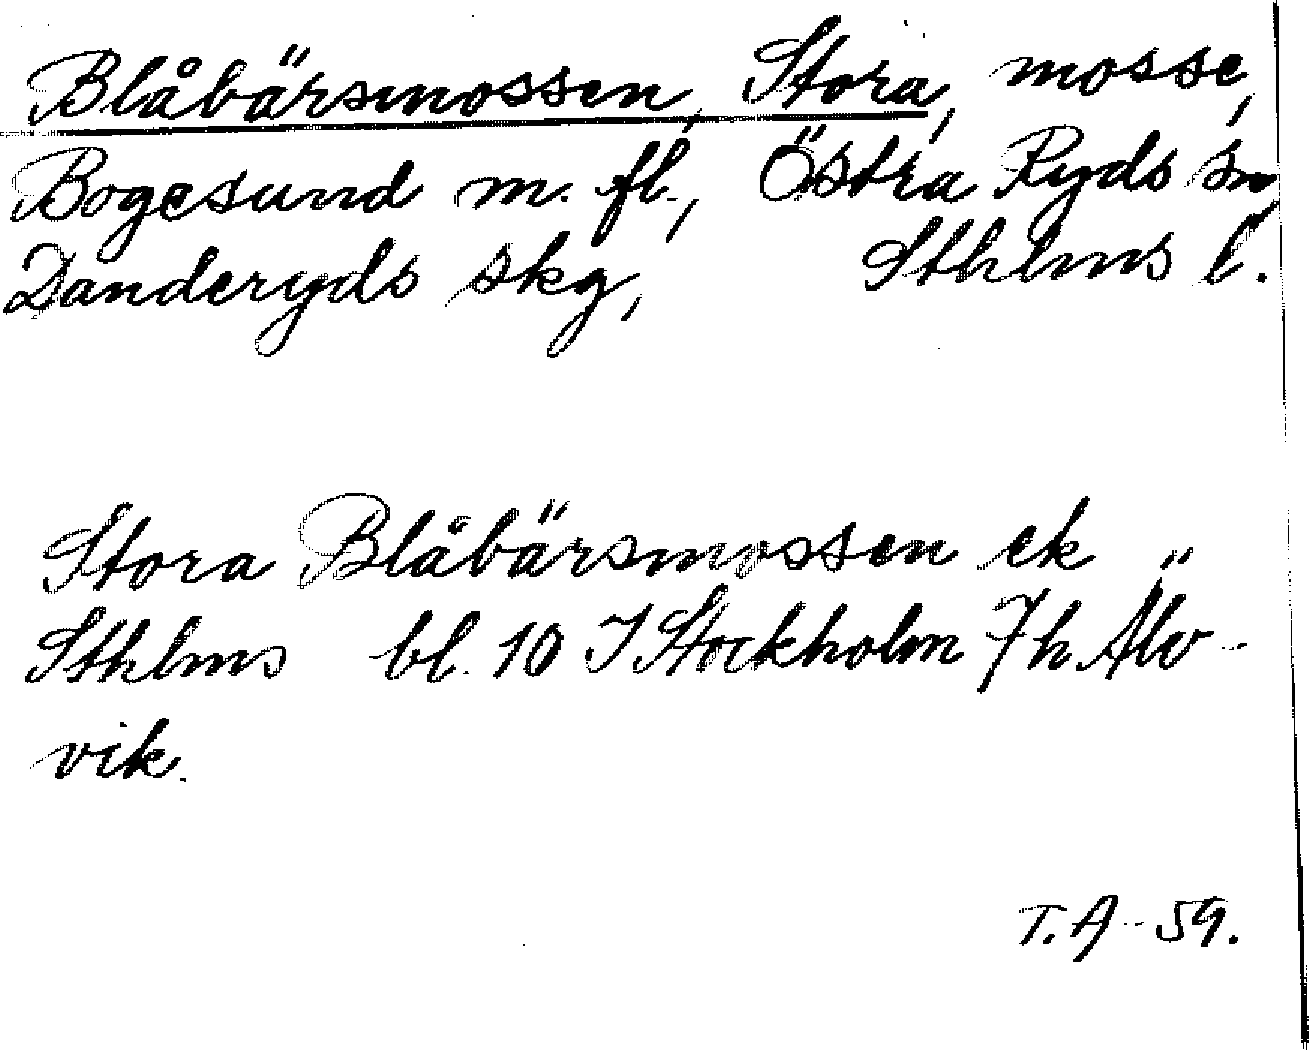 Blåbärsmossen, Stora, mosse,
Bogesund m. fl., Östra Ryds sn,
Danderyds skg, Sthlms l.
Stora Blåbärsmossen ek
Sthlms bl. 10 I Stockholm 7 h Älv-
vik.
T.A-59.